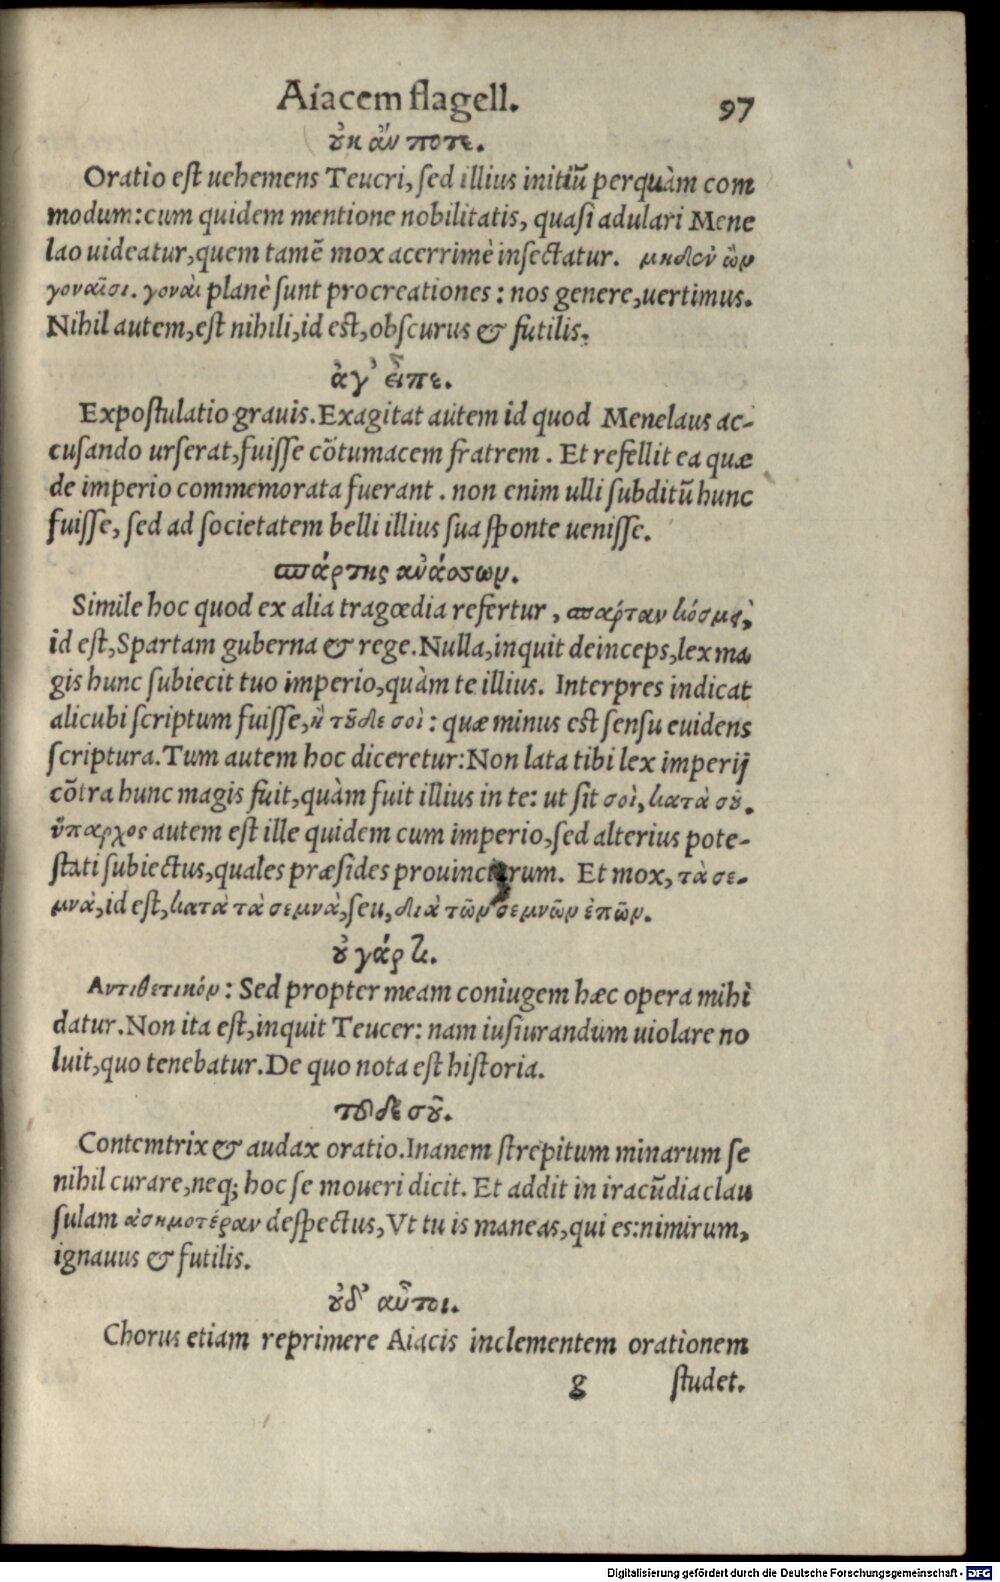 Aiacem flagell. 97
οὐκ ἄν ποτε.
Oratio est uehemens Teucri, sed illius initiũ perquàm com
modum: cum quidem mentione nobilitatis, quasi adulari Mene
lao uideatur, quem tamẽ mox acerrimè insectatur. μηδὲν ὢν
γοναῖσι. γοναὶ planè sunt procreationes: nos genere, uertimus.
Nihil autem, est nihili, id est, obscurus & futilis.
ἄγ' εἶπε.
Expostulatio grauis. Exagitat autem id quod Menelaus ac-
cusando urserat, fuisse cõtumacem fratrem. Et refellit ea quæ
de imperio commemorata fuerant. non enim ulli subditũ hunc
fuisse, sed ad societatem belli illius sua sponte uenisse.
σπάρτης ἀνάσσων.
Simile hoc quod ex alia tragœdia refertur, σπάρταν κόσμει,
id est, Spartam guberna & rege. Nulla, inquit deinceps, lex ma
gis hunc subiecit tuo imperio, quàm te illius. Interpres indicat
alicubi scriptum fuisse, ἢ τοῦδε σοὶ: quæ minus est sensu euidens
scriptura. Tum autem hoc diceretur: Non lata tibi lex imperij
cõtra hunc magis fuit, quàm fuit illius in te: ut sit σοὶ, κατὰ σοῦ.
ὕπαρχος autem est ille quidem cum imperio, sed alterius pote-
stati subiectus, quales præsides prouinciarum. Et mox, τὰ σε-
μνὰ, id est, κατὰ τὰ σεμνὰ, seu, διὰ τῶν σεμνῶν ἐπῶν.
οὐ γάρ τι.
Αντιθετικόν: Sed propter meam coniugem hæc opera mihi
datur. Non ita est, inquit Teucer: nam iusiurandum uiolare no
luit, quo tenebatur. De quo nota est historia.
τοῦ δὲ σοῦ.
Contemtrix & audax oratio. Inanem strepitum minarum se
nihil curare, neq; hoc se moueri dicit. Et addit in iracũdia clau
sulam ἀσημοτέραν despectus, Vt tu is maneas, qui es: nimirum,
ignauus & futilis.
οὐδ' αὖ τοι.
Chorus etiam reprimere Aiacis inclementem orationem
g studet.
Digitalisierung gefördert durch die Deutsche Forschungsgemeinschaft - DFG